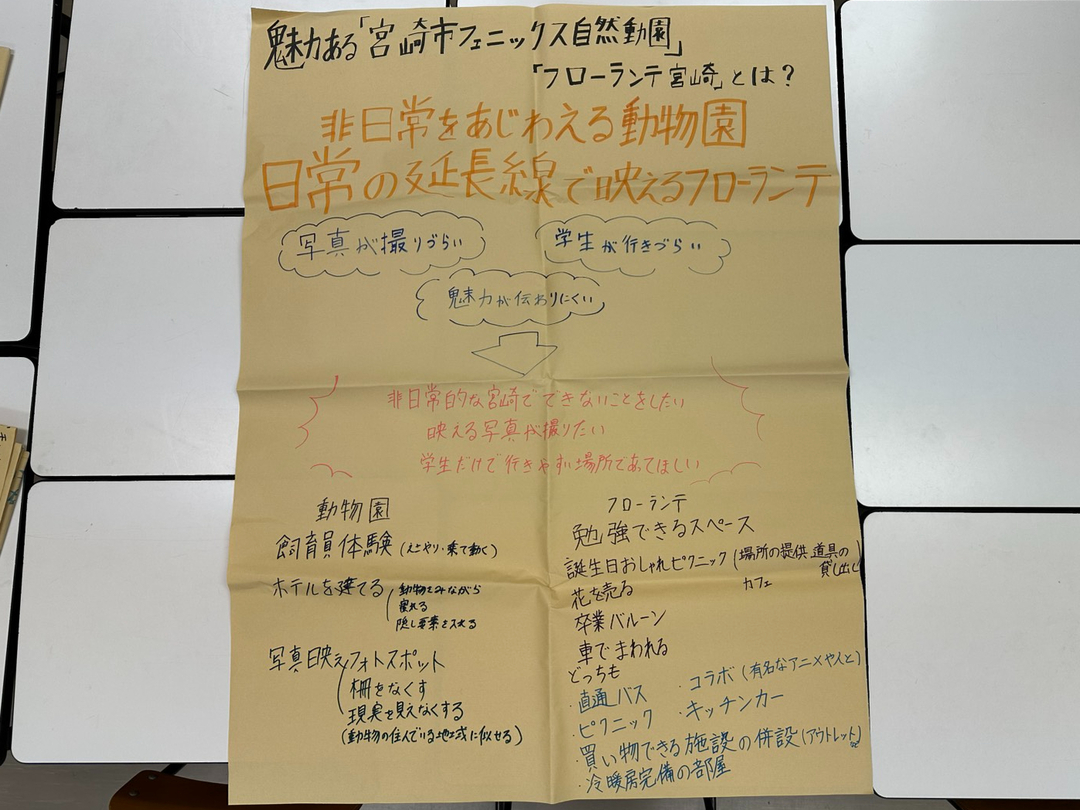 魅力ある「宮崎市フェニックス自然動園」
「フローランテ宮崎」とは?
非日常をあじわえる動物園
日常の延長線で映えるフローランテ
写真が撮りづらい
学生が行きづらい
魅力が伝わりにくい
非日常的な宮崎でできないことをしたい
映える写真が撮りたい
学生だけで行きやすい場所であってほしい
動物園
飼育員体験(えさやり・乗て動く)
ホテルを建てる
動物をみながら
寝れる
隠し要素を入れる
写真映えフォトスポット
柵をなくす
現実を見えなくする
(動物の住んでいる地域に似せる)
フローランテ
勉強できるスペース
誕生日おしゃれピクニック(場所の提供 道具の
貸し出し
カフェ
花を売る
卒業バルーン
車でまわれる
どっちも
・直通バス
・コラボ(有名なアニメや人と)
・ピクニック
・キッチンカー
・買い物できる施設の併設(アウトレット)
・冷暖房完備の部屋